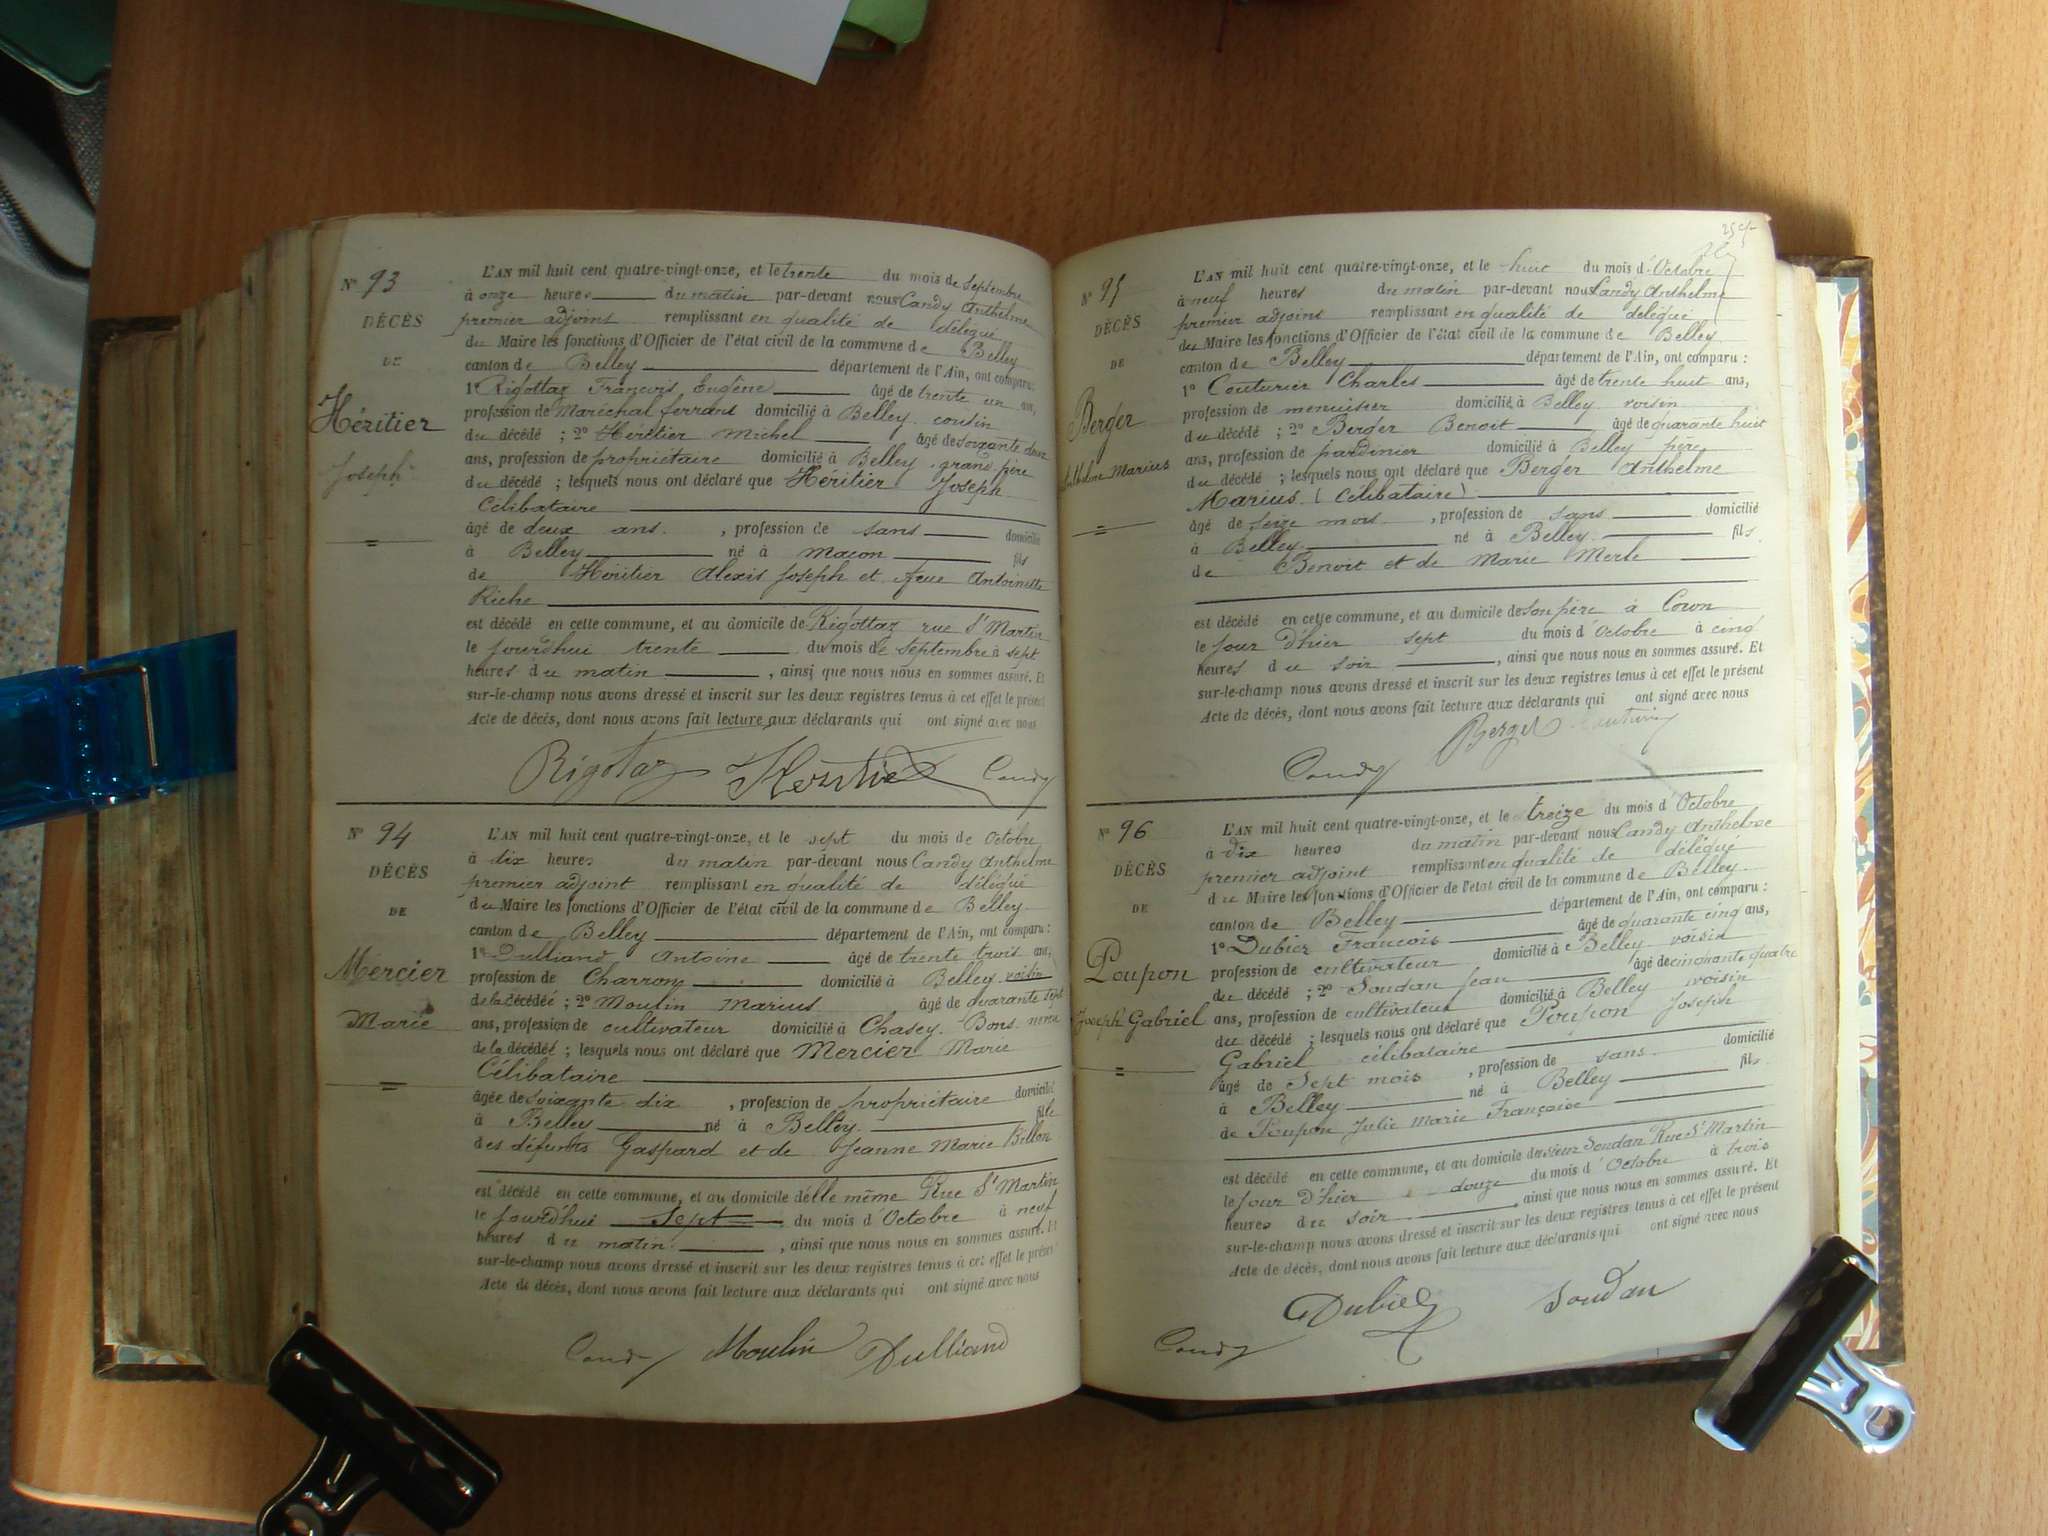 N° 93
DÉCÈS
DE
Héritier
Joseph
L'AN mil huit cent quatre-vingt-onze, et le trente du mois de Septembre
à onze heures du matin par-devant nous Candy Anthelme
premier adjoint remplissant en qualité de délégué
du Maire les fonctions d'Officier de l'état civil de la commune de Belley
canton de Belley département de l'Ain, ont comparu :
1° Rigottaz François Eugène âgé de trente un ans,
profession de Maréchal ferrant domicilié à Belley cousin
du décédé ; 2° Héritier Michel âgé de soixante deux
ans, profession de propriétaire domicilié à Belley grand père
du décédé ; lesquels nous ont déclaré que Héritier Joseph
Célibataire
âgé de deux ans. , profession de sans domicilié
à Belley né à Macon fils
de Héritier Alexis Joseph et feue Antoinette
Riche
est décédé en cette commune, et au domicile de Rigottaz rue St Martin
le jourd'hui trente du mois de septembre à sept
heures du matin , ainsi que nous nous en sommes assuré. Et
sur-le-champ nous avons dressé et inscrit sur les deux registres tenus à cet effet le présent
Acte de décès, dont nous avons fait lecture aux déclarants qui ont signé avec nous
Rigotaz Héritier Candy
N° 94
DÉCÈS
DE
Mercier
Marie
L'AN mil huit cent quatre-vingt-onze, et le sept du mois de Octobre
à dix heures du matin par-devant nous Candy Anthelme
premier adjoint remplissant en qualité de délégué
du Maire les fonctions d'Officier de l'état civil de la commune de Belley
canton de Belley département de l'Ain, ont comparu :
1° Dulliand Antoine âgé de trente trois ans,
profession de Charron domicilié à Belley voisin
de la décédée ; 2° Moulin Marius âgé de quarante sept
ans, profession de cultivateur domicilié à Chasey-Bons neveu
de la décédée ; lesquels nous ont déclaré que Mercier Marie
Célibataire
âgée de soixante dix , profession de propriétaire domicilié
à Belley né à Belley. fille
des défunts Gaspard et de Jeanne Marie Billon
est décédé en cette commune, et au domicile d'elle même Rue St Martin
le jourd'hui Sept du mois d'Octobre à neuf
heures du matin. , ainsi que nous nous en sommes assuré. Et
sur-le-champ nous avons dressé et inscrit sur les deux registres tenus à cet effet le présent
Acte de décès, dont nous avons fait lecture aux déclarants qui ont signé avec nous
Candy Moulin Dulliand
N° 95
DÉCÈS
DE
Berger
Anthelme Marius
L'AN mil huit cent quatre-vingt-onze, et le huit du mois d'Octobre
à neuf heures du matin par-devant nous Candy Anthelme
premier adjoint remplissant en qualité de délégué
du Maire les fonctions d'Officier de l'état civil de la commune de Belley
canton de Belley département de l'Ain, ont comparu :
1° Couturier Charles âgé de trente huit ans,
profession de menuisier domicilié à Belley voisin
du décédé ; 2° Berger Benoit âgé de quarante huit
ans, profession de jardinier domicilié à Belley père
du décédé ; lesquels nous ont déclaré que Berger Anthelme
Marius (Célibataire)
âgé de seize mois , profession de sans domicilié
à Belley né à Belley fils
de Benoit et de Marie Merle
est décédé en cette commune, et au domicile de son père à Coron
le jour d'hier sept du mois d'Octobre à cinq
heures du soir , ainsi que nous nous en sommes assuré. Et
sur-le-champ nous avons dressé et inscrit sur les deux registres tenus à cet effet le présent
Acte de décès, dont nous avons fait lecture aux déclarants qui ont signé avec nous
Berger Couturier
Candy
N° 96
DÉCÈS
DE
Poupon
Joseph Gabriel
L'AN mil huit cent quatre-vingt-onze, et le treize du mois d'Octobre
à dix heures du matin par-devant nous Candy Anthelme
premier adjoint remplissant en qualité de délégué
du Maire les fonctions d'Officier de l'état civil de la commune de Belley
canton de Belley département de l'Ain, ont comparu :
1° Dubiez François âgé de quarante cinq ans,
profession de cultivateur domicilié à Belley voisin
du décédé ; 2° Soudan Jean âgé de cinquante quatre
ans, profession de cultivateur domicilié à Belley voisin
du décédé ; lesquels nous ont déclaré que Poupon Joseph
Gabriel célibataire
âgé de Sept mois , profession de sans domicilié
à Belley né à Belley fils
de Poupon Julie Marie Françoise
est décédé en cette commune, et au domicile de sieur Soudan Rue St Martin
le jour d'hier douze du mois d'Octobre à trois
heures du soir , ainsi que nous nous en sommes assuré. Et
sur-le-champ nous avons dressé et inscrit sur les deux registres tenus à cet effet le présent
Acte de décès, dont nous avons fait lecture aux déclarants qui ont signé avec nous
Dubiez Soudan
Candy